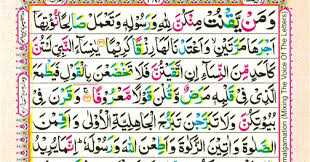 وَمَنْ يَّقْنُتْ مِنْكُنَّ لِلّٰهِ وَرَسُوْلِهٖ وَتَعْمَلْ صَالِحًا نُّؤْتِهَاۤ
اَجْرَهَا مَرَّتَيْنِ وَاَعْتَدْنَا لَهَا رِزْقًا كَرِيْمًا يٰنِسَآءَ النَّبِيِّ لَسْتُنَّ
كَاَحَدٍ مِّنَ النِّسَآءِ اِنِ اتَّقَيْتُنَّ فَلَا تَخْضَعْنَ بِالْقَوْلِ فَيَطْمَعَ
الَّذِيْ فِيْ قَلْبِهٖ مَرَضٌ وَّقُلْنَ قَوْلًا مَّعْرُوْفًا وَقَرْنَ فِيْ
بُيُوْتِكُنَّ وَلَا تَبَرَّجْنَ تَبَرُّجَ الْجَاهِلِيَّةِ الْاُوْلٰى وَاَقِمْنَ
الصَّلٰوةَ وَاٰتِيْنَ الزَّكٰوةَ وَاَطِعْنَ اللّٰهَ وَرَسُوْلَهٗ اِنَّمَا يُرِيْدُ
amalgamation (Mixing The Voice Of The Letters)